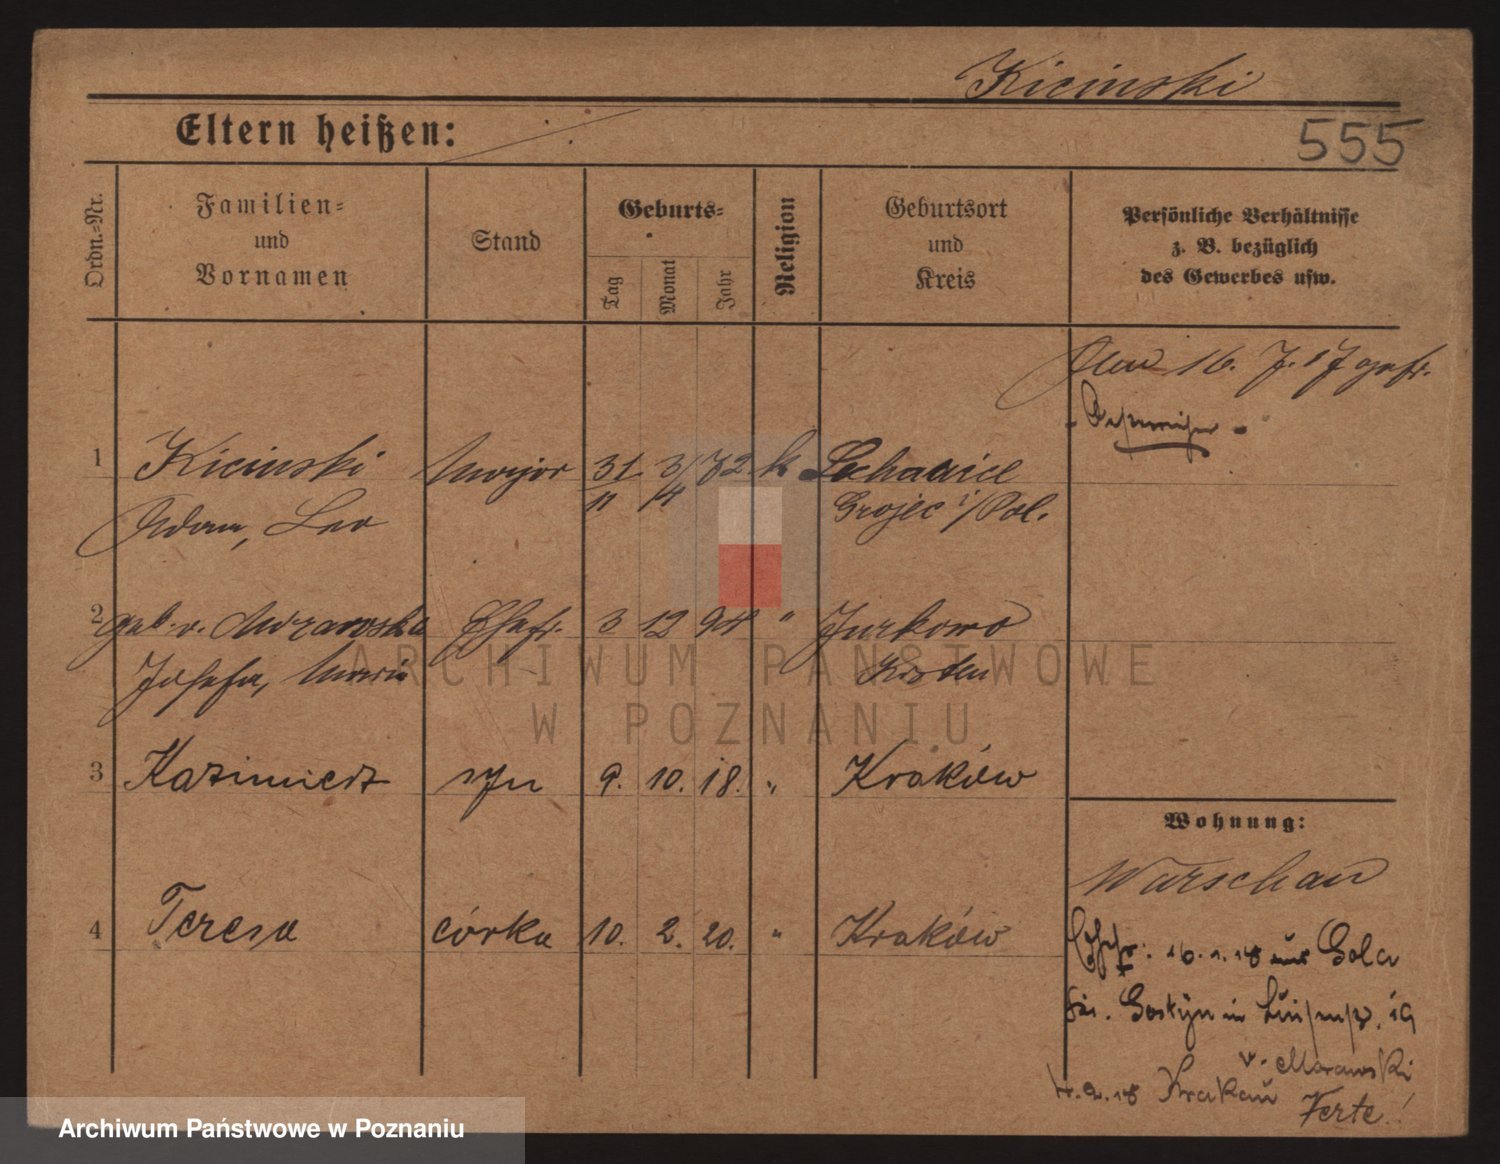 Kicinski
Eltern heißen:
555
Ordn.=Nr.
Familien=
und
Vornamen
Stand
Geburts=
Tag
Monat
Jahr
Religion
Geburtsort
und
Kreis
Persönliche Verhältnisse
z. B. bezüglich
des Gewerbes usw.
16. 7. 17
1 Kicinski Major 31. 3. 72 k
11 4
Adam, Leo Grojec i/Pol.
2 geb. v. Morawska Ehefr. 3 12 94 " Jurkowo
Josefa, Maria Kosten
3 Kazimierz syn 9. 10. 18. " Kraków
4 Teresa córka 10. 2. 20. " Kraków
Wohnung:
Warschau
Ehefr. 16. 1. 18 aus Gola
Gostyn in 19
v. Morawski
18 Krakau Verte!
ARCHIWUM PAŃSTWOWE
W POZNANIU
Archiwum Państwowe w Poznaniu